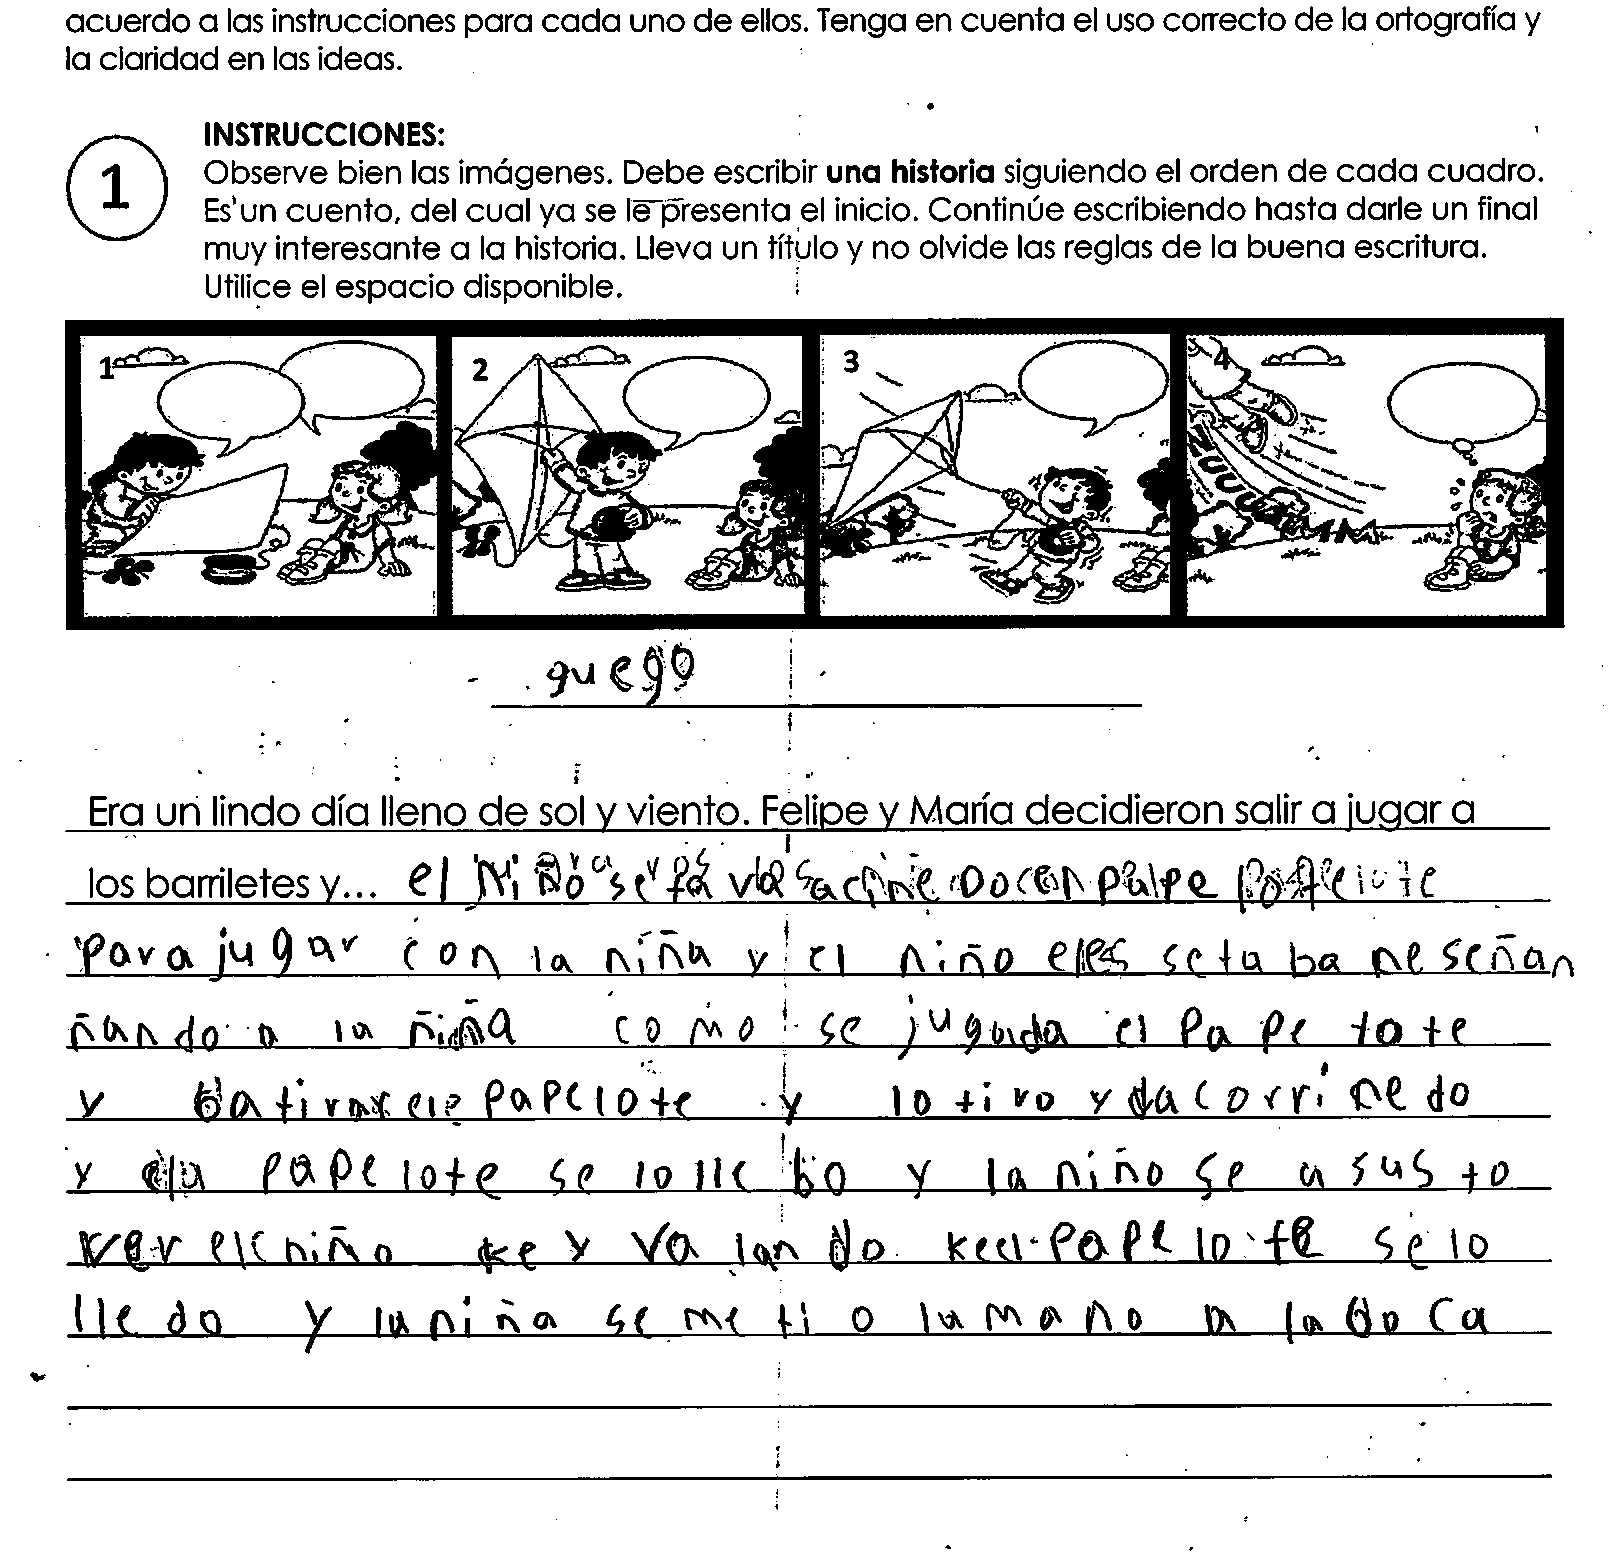 acuerdo a las instrucciones para cada uno de ellos. Tenga en cuenta el uso correcto de la ortografía y
la claridad en las ideas.
INSTRUCCIONES:
1
Observe bien las imágenes. Debe escribir una historia siguiendo el orden de cada cuadro.
Es un cuento, del cual ya se le presenta el inicio. Continúe escribiendo hasta darle un final
muy interesante a la historia. Lleva un título y no olvide las reglas de la buena escritura.
Utilice el espacio disponible.
1 2 3 4
ZUUUUMMM
guego
Era un lindo día lleno de sol y viento. Felipe y María decidieron salir a jugar a
los barriletes y... el niño
para jugar con la niña y el niño eles setaba neseñan
ñando a la niña como se jugada el Pa pe lo te
y batirar ele papelote y lo tiro y da corrinedo
y papelote se lo lle bo y la niño se a sus to
ver el niño ke y va lan do keel papelote se lo
lle do y la niña se me ti o la mano a la boca